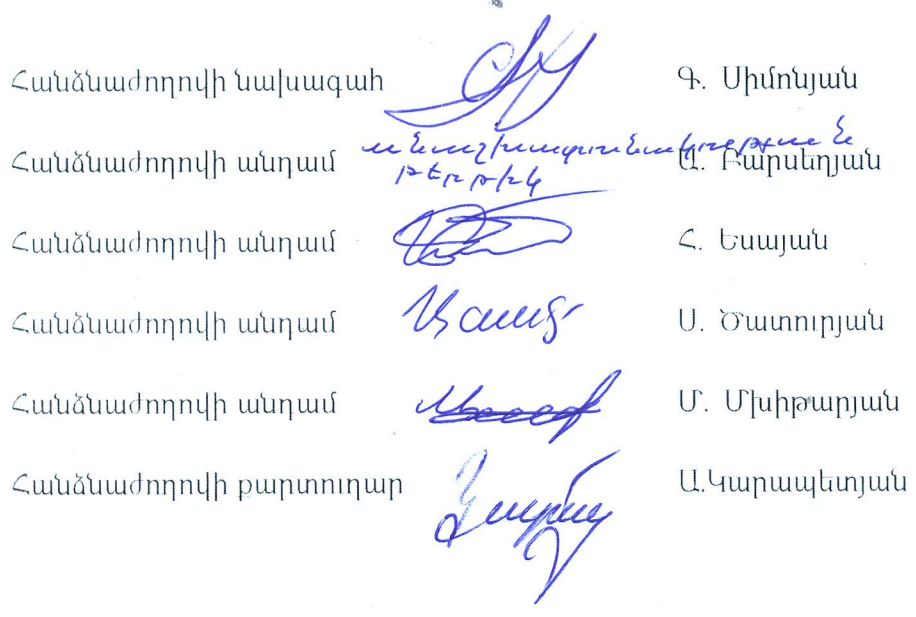 Հանձնաժողովի նախագահ Գ. Սիմոնյան
Հանձնաժողովի անդամ անաշխատունակության Ա. Բարսեղյան
թերթիկ
Հանձնաժողովի անդամ Հ. Եսայան
Հանձնաժողովի անդամ Ս. Ծատուրյան
Հանձնաժողովի անդամ Մ. Մխիթարյան
Հանձնաժողովի քարտուղար Ա.Կարապետյան